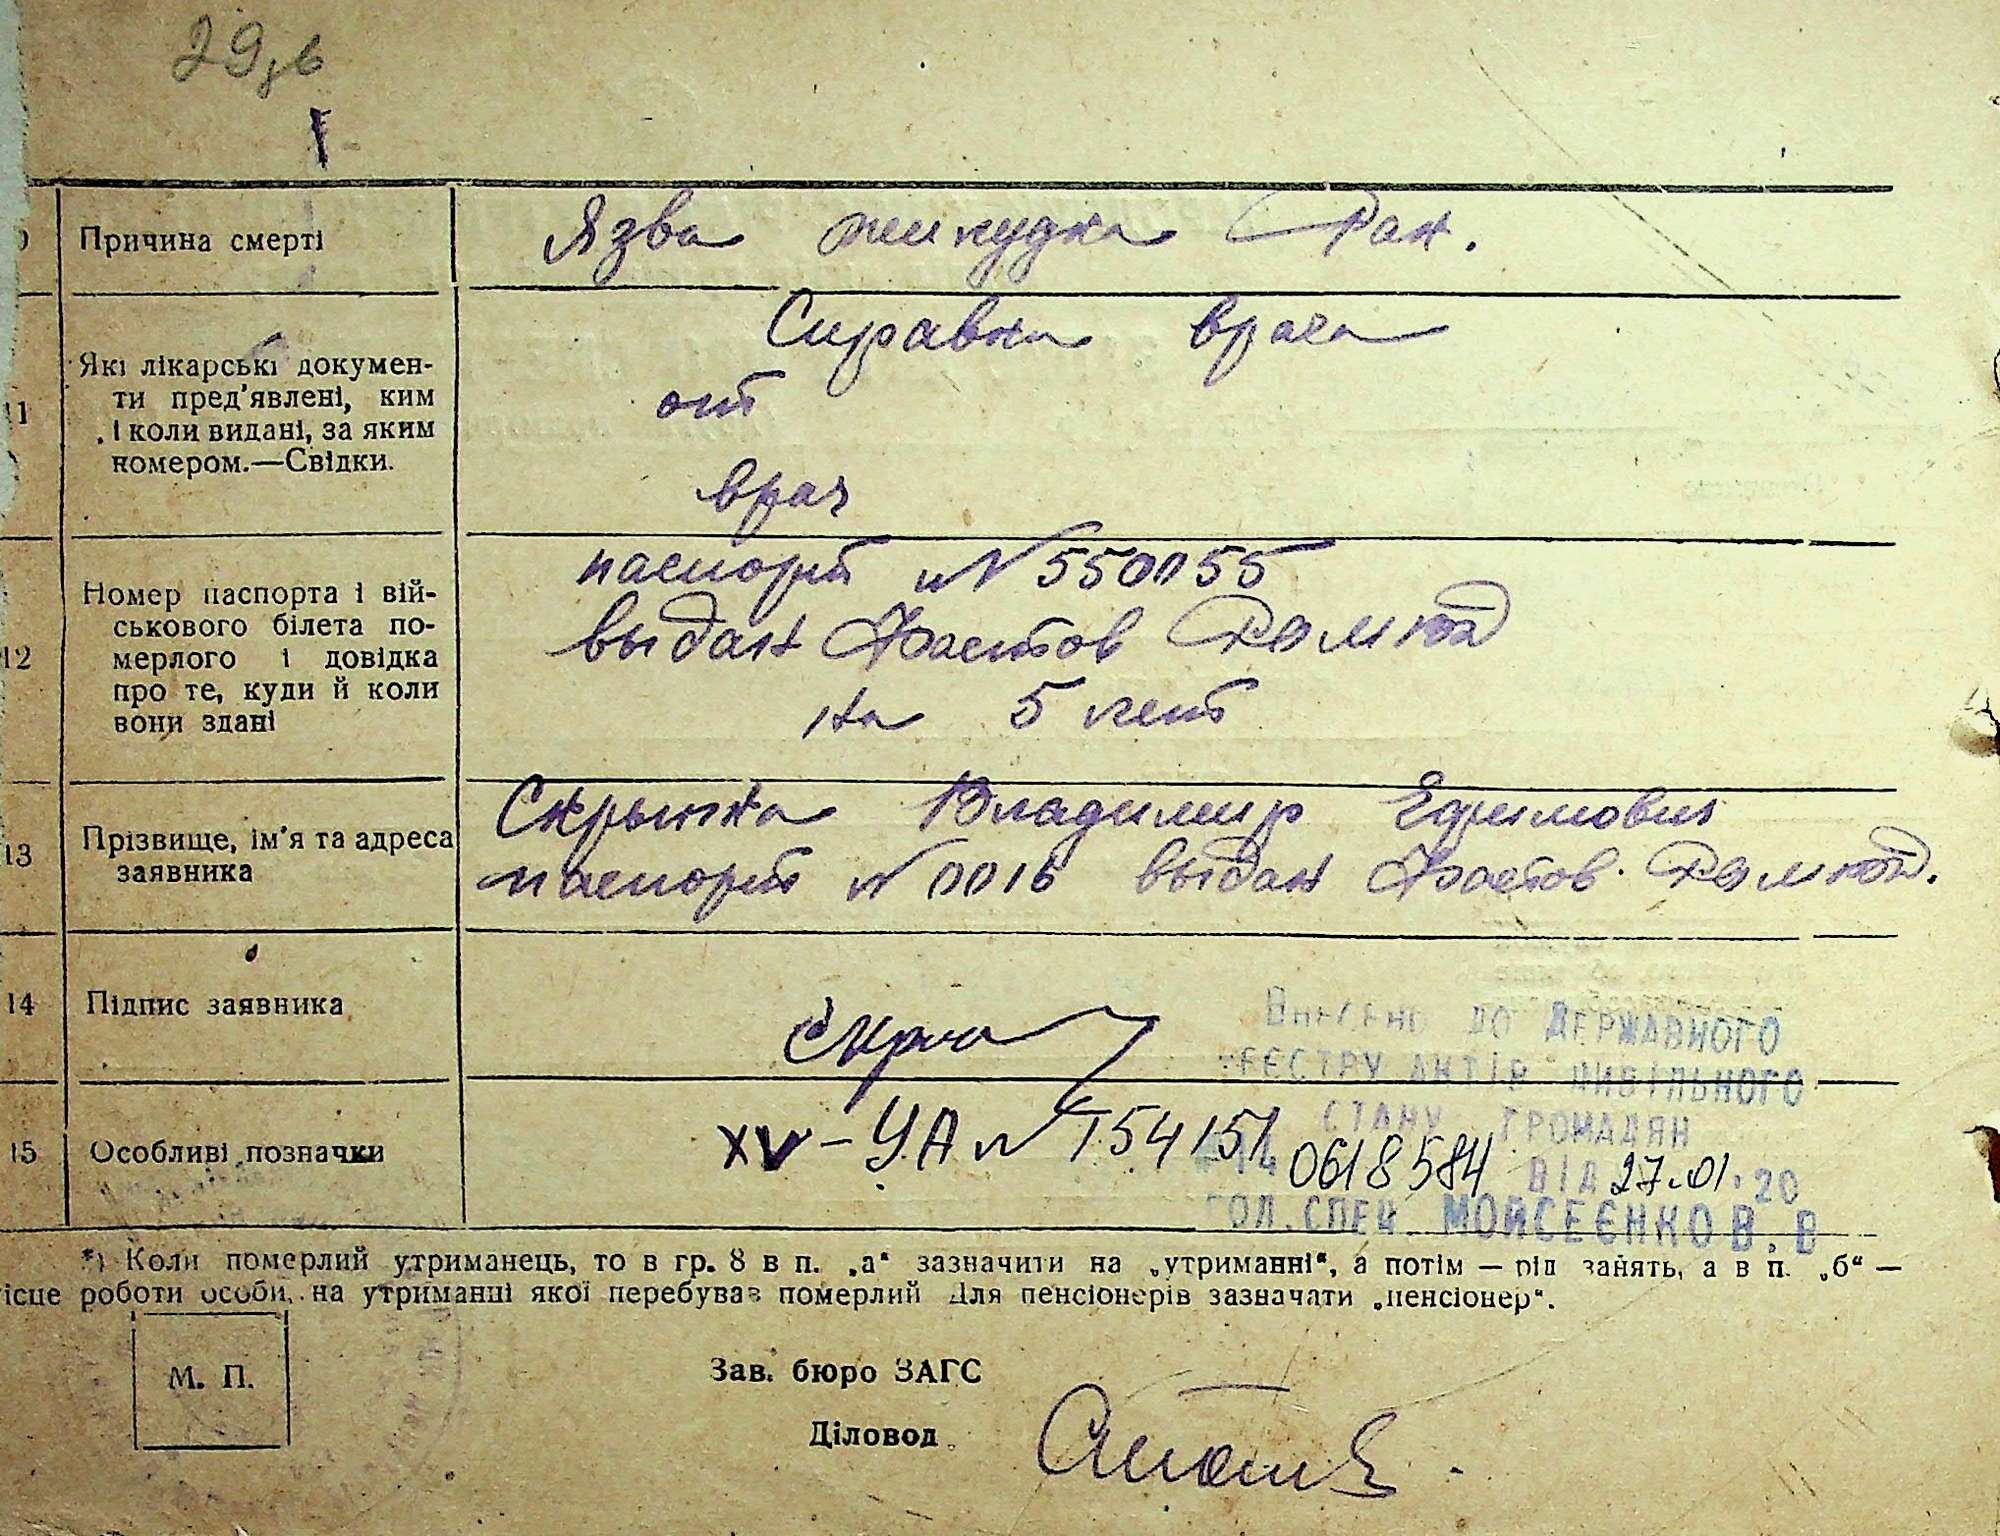 29
Причина смерті
Язва желудка Рак.
11
Які лікарські докумен-
ти пред'явлені, ким
і коли видані, за яким
номером.—Свідки.
Справка врача
от
врач
12
Номер паспорта і вій-
ськового білета по-
мерлого і довідка
про те, куди й коли
вони здані
паспорт № 550055
выдан Фастов
на 5 лет
13
Прізвище, ім'я та адреса
заявника
Скрыпка Владимир Ефимович
паспорт № 0016 выдан Фастов.
14
Підпис заявника
15
Особливі позначки
XV – УА № 154151
Внесено до Державного
реєстру актів цивільного
стану громадян
0618584 від 27.01.20
гол. спец. Мойсеєнко В. В
*) Коли померлий утриманець, то в гр. 8 в п. „а“ зазначити на „утриманні“, а потім — рід занять, а в п. „б“ —
місце роботи особи, на утриманні якої перебував померлий Для пенсіонерів зазначати „пенсіонер“.
М. П.
Зав. бюро ЗАГС
Діловод